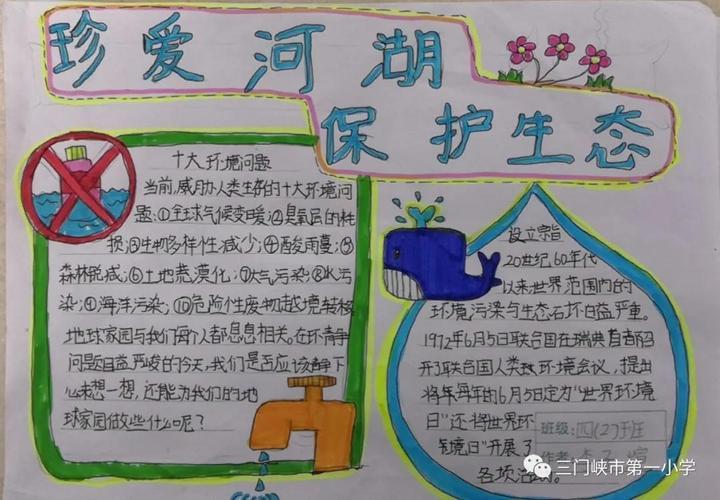 珍爱河湖
保护生态
十大环境问题
当前,威胁人类生存的十大环境问
题:①全球气候变暖;②臭氧层的耗
损③生物多样性减少;④酸雨蔓;⑤
森林锐减;⑥土地荒漠化;⑦大气污染;⑧水污
染;⑨海洋污染;⑩危险性废物越境转移
地球家园与我们每个人都息息相关。在环境
问题日益严峻的今天,我们是否应该静下
心来想一想,还能为我们的地
球家园做些什么呢?
设立宗旨
20世纪60年代
以来世界范围内的
环境污染与生态破坏日益严重。
1972年6月5日联合国在瑞典首都召
开联合国人类环境会议,提出
将每年的6月5日定为"世界环境
日"还将世界环
境日"开展了
各项活
班级:四(2)班
作者:
三门峡市第一小学